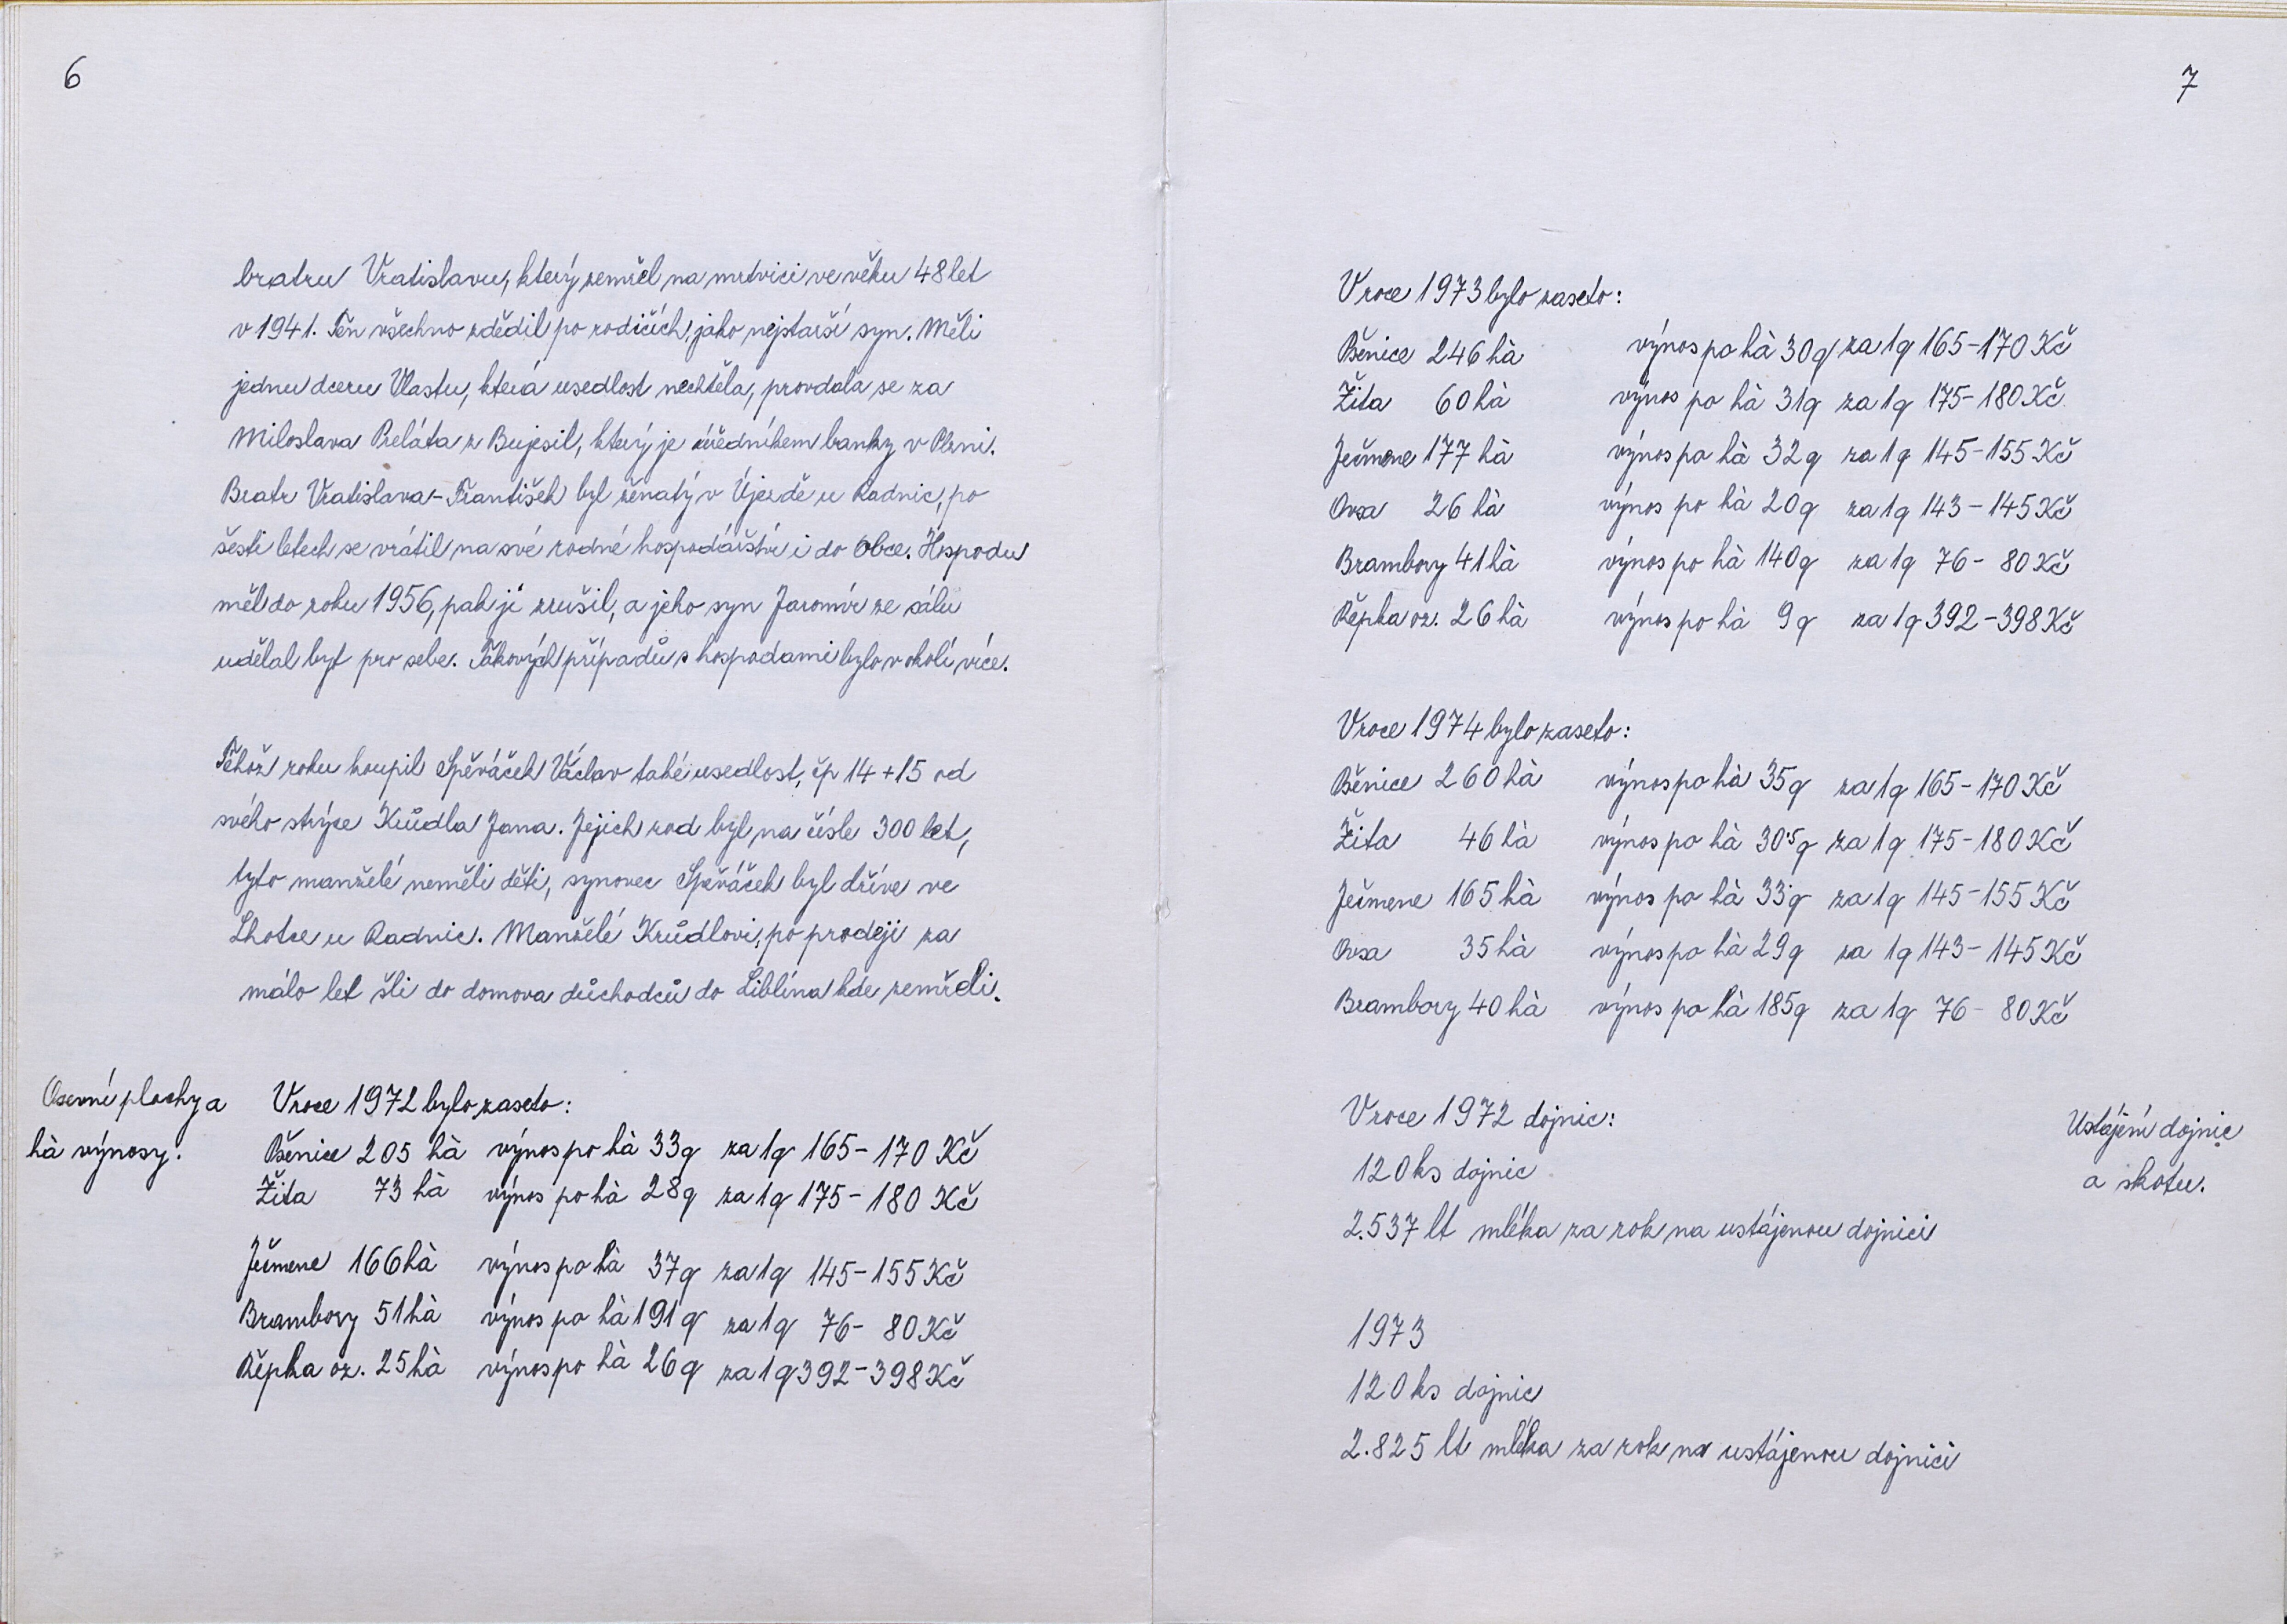 6
bratru Vratislavu, který zemřel na mrtvici ve věku 48 let
v 1941. Ten všechno zdědil po rodičích, jako nejstarší syn. Měli
jednu dceru Vlastu, která usedlost nechtěla, provdala se za
Miloslava Preláta z Bujesil, který je úředníkem banky v Plzni.
Bratr Vratislava - František byl ženatý v Újezdě u Radnic, po
šesti letech se vrátil na své rodné hospodářství i do Obce. Hospodu
měl do roku 1956, pak ji zrušil, a jeho syn Jaromír ze sálu
udělal byt pro sebe. Takových případů s hospodami bylo v okolí více.
Téhož roku koupil Spěváček Václav také usedlost, čp 14 + 15 od
svého strýce Krůdla Jana. Jejich rod byl na čísle 300 let,
tyto manželé neměli děti, synovec Spěváček byl dříve ve
Lhotce u Radnic. Manželé Krůdlovi, po prodeji za
málo let šli do domova důchodců do Liblína kde zemřeli.
Osevní plochy a
hà výnosy.
V roce 1972 bylo zaseto:
Pšenice 205 hà výnos po hà 33q za 1q 165 - 170 Kč
Žita 73 hà výnos po hà 28q za 1q 175 - 180 Kč
Ječmene 166 hà výnos po hà 37q za 1q 145 - 155 Kč
Brambory 51 hà výnos po hà 191 q za 1q 76 - 80 Kč
Řepka oz. 25 hà výnos po hà 26q za 1q 392 - 398 Kč
7
V roce 1973 bylo zaseto:
Pšenice 246 hà výnos po hà 30q za 1q 165 - 170 Kč
Žita 60 hà výnos po hà 31q za 1q 175 - 180 Kč
Ječmene 177 hà výnos po hà 32q za 1q 145 - 155 Kč
Ovsa 26 hà výnos po hà 20q za 1q 143 - 145 Kč
Brambory 41 hà výnos po hà 140q za 1q 76 - 80 Kč
Řepka oz. 26 hà výnos po hà 9q za 1q 392 - 398 Kč
V roce 1974 bylo zaseto:
Pšenice 260 hà výnos po hà 35q za 1q 165 - 170 Kč
Žita 46 hà výnos po hà 30·5q za 1q 175 - 180 Kč
Ječmene 165 hà výnos po hà 33q za 1q 145 - 155 Kč
Ovsa 35 hà výnos po hà 29q za 1q 143 - 145 Kč
Brambory 40 hà výnos po hà 185q za 1q 76 - 80 Kč
V roce 1972 dojnic:
120 ks dojnic
2.537 lt mléka za rok na ustájenou dojnici
Ustájení dojnic
a skotu.
1973
120 ks dojnic
2.825 lt mléka za rok na ustájenou dojnici